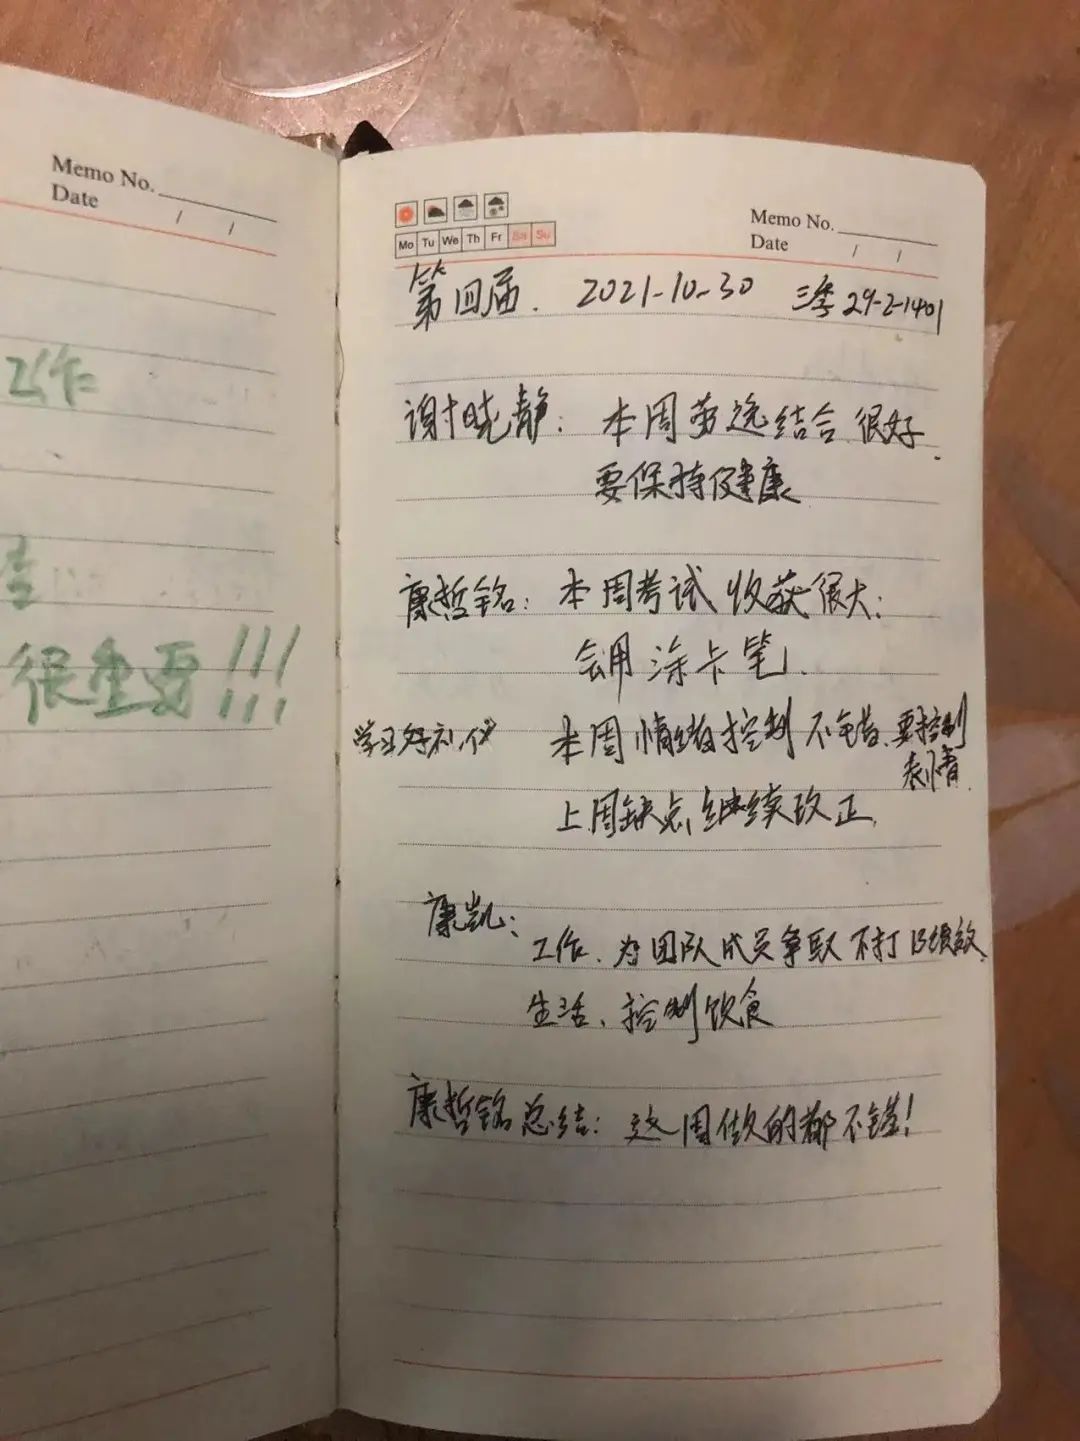 Memo No.
Date / /
工作
很重要!!!
Mo Tu We Th Fr Sa Su
Memo No.
Date / /
第四届. 2021-10-30 三季 29-2-1401
谢晓静: 本周劳逸结合很好.
要保持健康
康哲铭: 本周考试收获很大;
会用涂卡笔.
学习好礼仪 本周情绪控制不错、要控制
表情.
上周缺点继续改正.
康凯:
工作、为团队成员争取不打B绩效.
生活、控制饮食
康哲铭总结: 这周做的都不错!